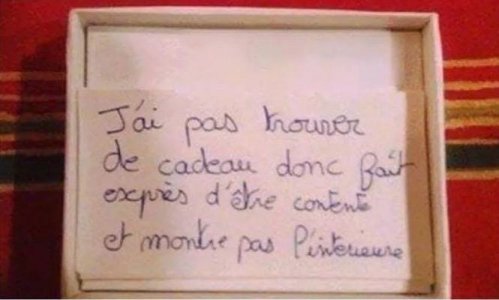 J'ai pas trouver
de cadeau donc fait
exprès d'être contente
et montre pas l'intérieure